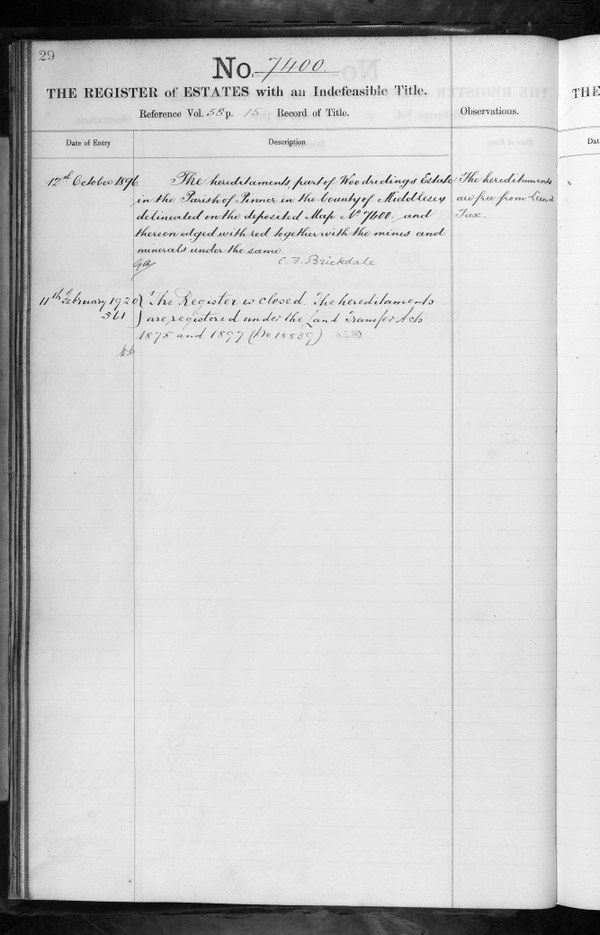 29
No. 7400
THE REGISTER of ESTATES with an Indefeasible Title.
Reference Vol. 58 p. 15 Record of Title.
Observations.
Date of Entry
Description
12th October 1896.
The hereditaments part of Woodridings Estate
in the Parish of Pinner in the County of Middlesex
delineated on the deposited Map No 7400. and
thereon edged with red together with the mines and
minerals under the same.
C. F. Brickdale
The hereditaments
are free from Land
Tax.
11th February 1920
561
The Register is closed. The hereditaments
are registered under the Land Transfer Acts
1875 and 1897 (No 18839)
THE
Dat